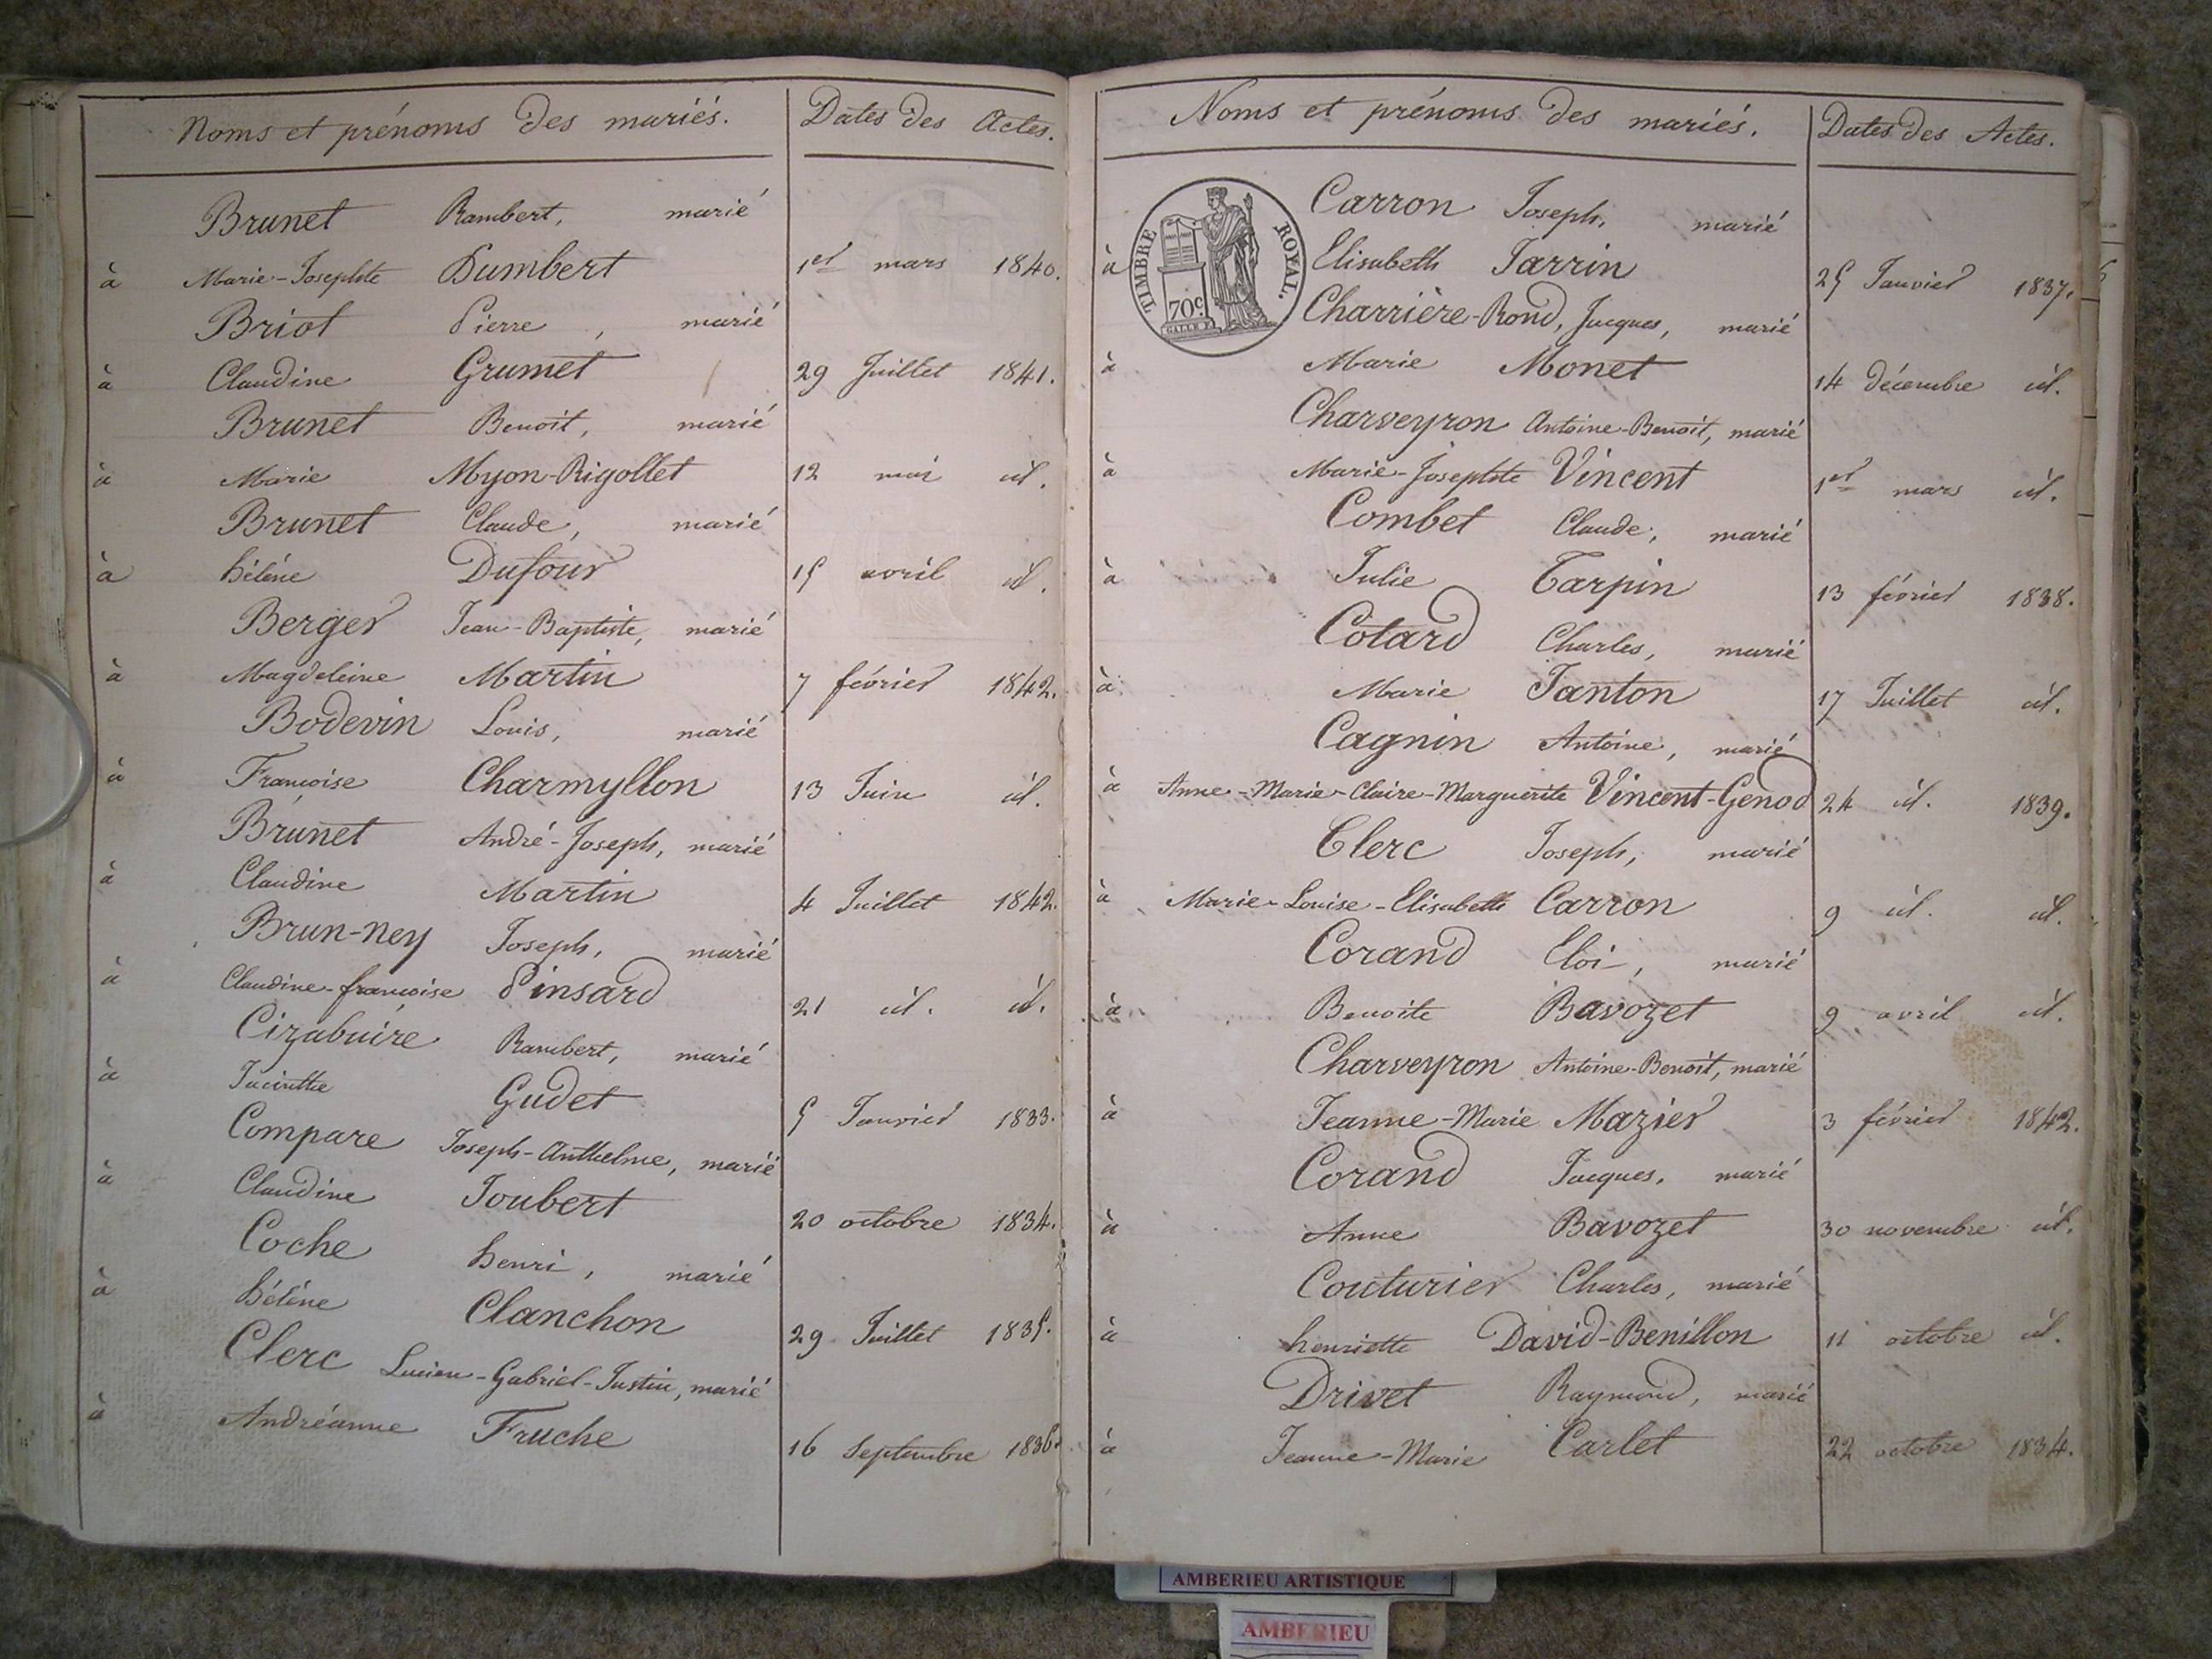 Noms et prénoms des mariés. Dates des Actes.
Brunet Rambert, marié
à Marie-Josephte Dumbert 1er mars 1840.
Briot Pierre, marié
à Claudine Grumet 29 Juillet 1841.
Brunet Benoit, marié
à Marie Myon-Rigollet 12 mai id.
Brunet Claude, marié
à hélène Dufour 15 avril id.
Berger Jean-Baptiste, marié
à Magdeleine Martin 7 février 1842.
Bodevin Louis, marié
à Françoise Charmyllon 13 Juin id.
Brunet André-Joseph, marié
à Claudine Martin 4 Juillet 1842.
Brun-ney Joseph, marié
à Claudine-françoise Pinsard 21 id. id.
Cizabuire Rambert, marié
à Jacinthe Gudet 5 Janvier 1833.
Compare Joseph-Anthelme, marié
à Claudine Joubert 20 octobre 1834.
Coche henri, marié
à hélène Clanchon 29 Juillet 1835.
Clerc Lucien-Gabriel-Justin, marié
à Andréanne Fruche 16 Septembre 1836.
Noms et prénoms des mariés. Dates des Actes.
TIMBRE ROYAL.
70c.
Carron Joseph, marié
à Elisabeth Jarrin 25 Janvier 1837.
Charrière-Rond, Jacques, marié
à Marie Monet 14 décembre id.
Charveyron Antoine-Benoit, marié
à Marie-Josephte Vincent 1er mars id.
Combet Claude, marié
à Julie Tarpin 13 février 1838.
Cotard Charles, marié
à Marie Janton 17 Juillet id.
Cagnin Antoine, marié
à Anne-Marie-Claire-Marguerite Vincent-Genod 24 id. 1839.
Clerc Joseph, marié
à Marie-Louise-Elisabeth Carron 9 id. id.
Corand Eloi, marié
à Benoite Bavozet 9 avril id.
Charveyron Antoine-Benoit, marié
à Jeanne-Marie Mazier 3 février 1842.
Corand Jacques, marié
à Anne Bavozet 30 novembre id.
Couturier Charles, marié
à henriette David-Benillon 11 octobre id.
Drivet Raymond, marié
à Jeanne-Marie Carlet 22 octobre 1834.
AMBERIEU ARTISTIQUE
AMBERIEU